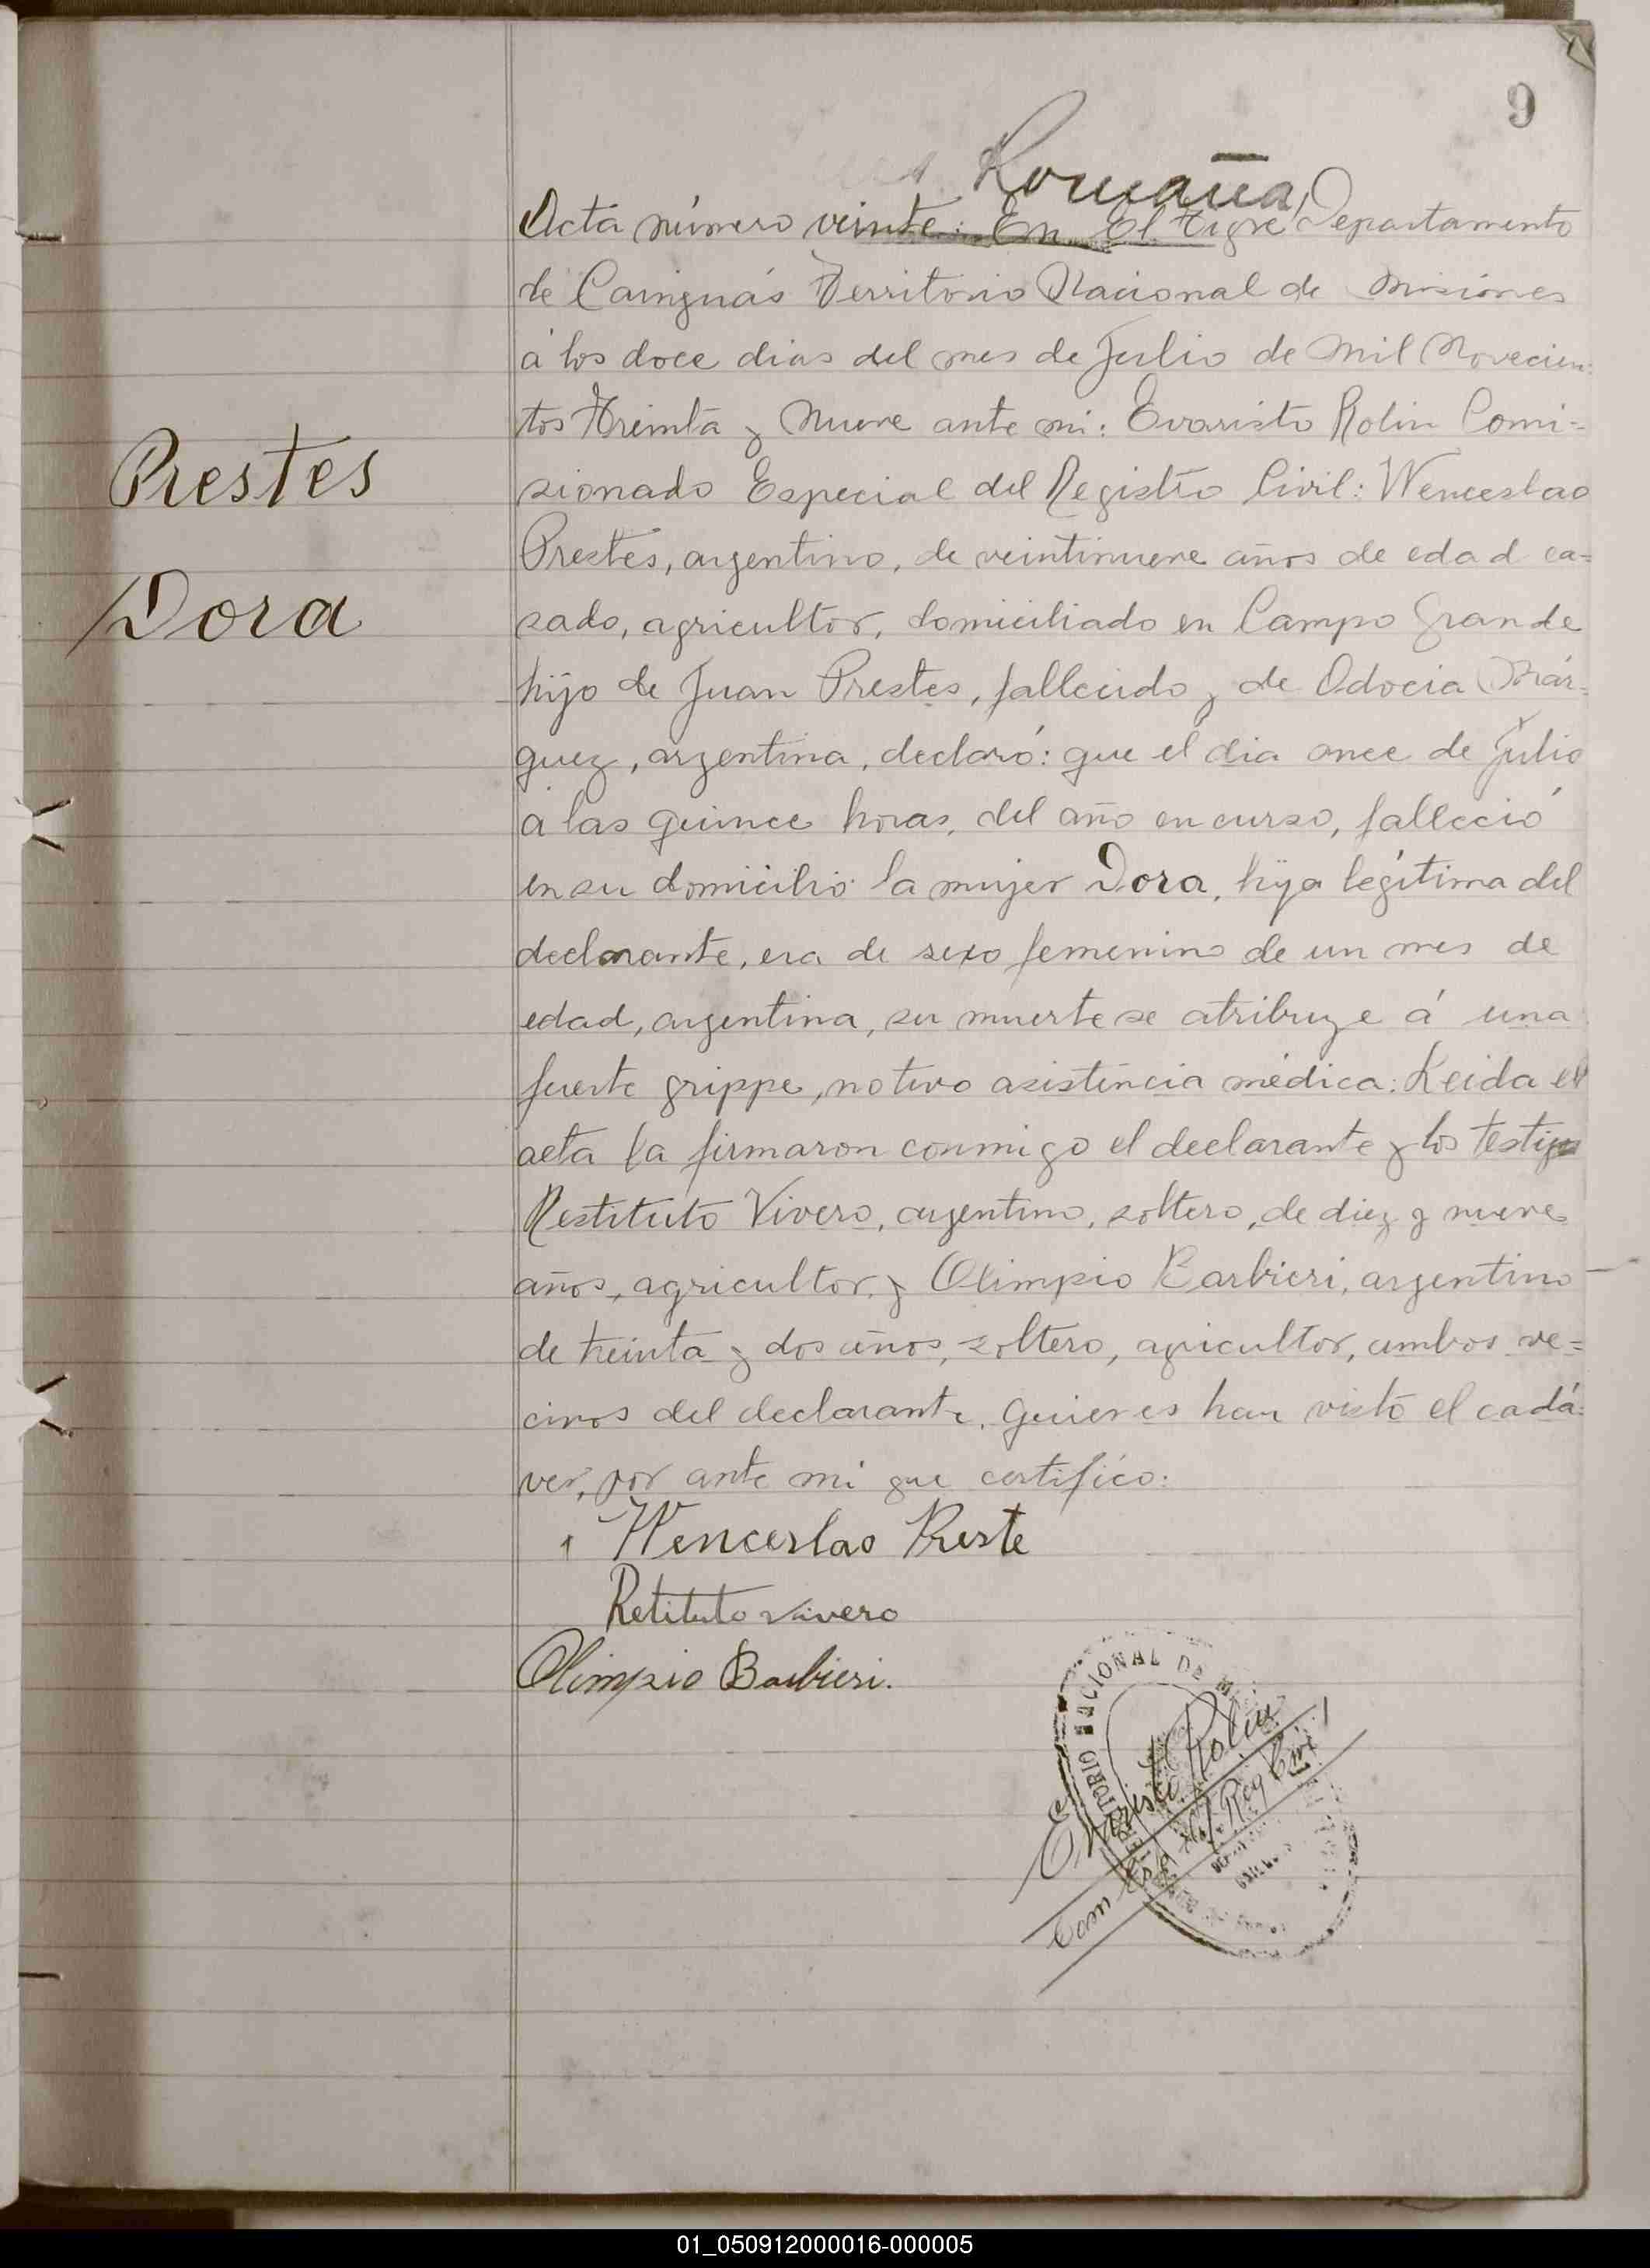 9
Romaña
Acta número veinte: En El Tigre, Departamento
de Cainguás Territorio Nacional de Misiones
á los doce dias del mes de Julio de Mil Novecien-
tos Treinta y Nueve ante mi: Evaristo Rolin Comi-
sionado Especial del Registro Civil: Wenceslao
Prestes, argentino, de veintinueve años de edad ca-
sado, agricultor, domiciliado en Campo Grande
hijo de Juan Prestes, fallecido y de Odocia Már-
quez, argentina, declaró: que el dia once de Julio
a las quince horas, del año en curso, falleció
en su domicilio la mujer Dora, hija legítima del
declarante, era de sexo femenino de un mes de
edad, argentina, su muerte se atribuye á una
fuerte grippe, no tuvo asistencia médica: Leida el
acta la firmaron conmigo el declarante y los testigos
Restituto Vivero, argentino, soltero, de diez y nueve
años, agricultor, y Olimpio Barbieri, argentino
de treinta y dos años, soltero, agricultor, ambos ve=
cinos del declarante, quienes han visto el cadá-
ver, por ante mi que certifico:
Prestes
Dora
Wenceslao Preste
Retituto Vivero
Olimpio Barbieri.
TERRITORIO NACIONAL DE
Evaristo Rolin
Com Esp del Reg Civil
01_050912000016-000005